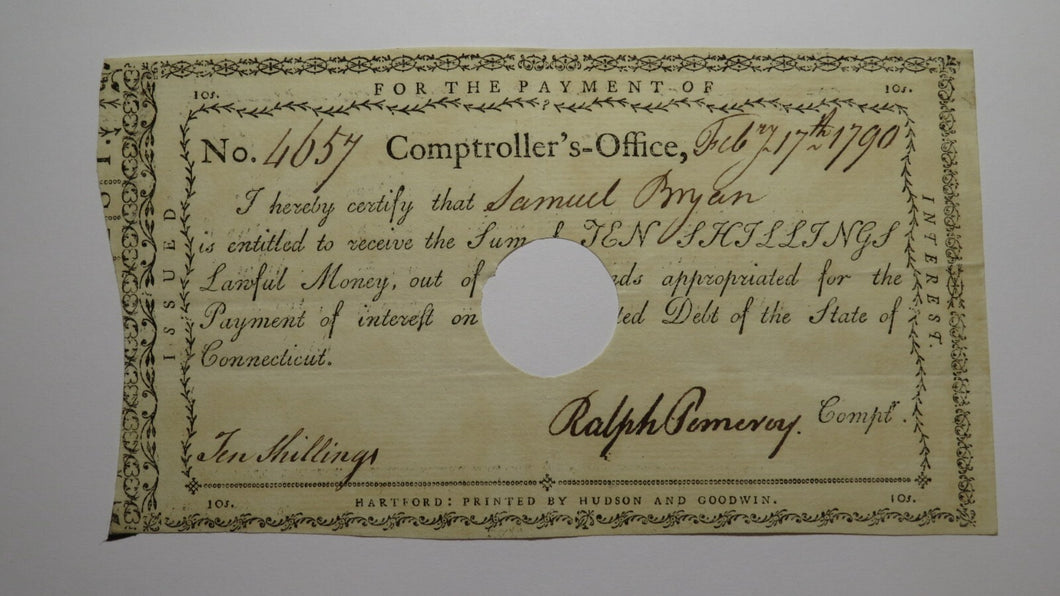 10s. FOR THE PAYMENT OF 10s.
No. 4657 Comptroller's-Office, Febry 17th 1790
I hereby certify that Samuel Bryan
is entitled to receive the Sum of TEN SHILLINGS
Lawful Money, out of appropriated for the
Payment of intereſt on Debt of the State of
Connecticut.
Ralph Pomeroy. Comptr.
Ten Shillings
10s. HARTFORD: PRINTED BY HUDSON AND GOODWIN. 10s.
ISSUED
INTEREST.